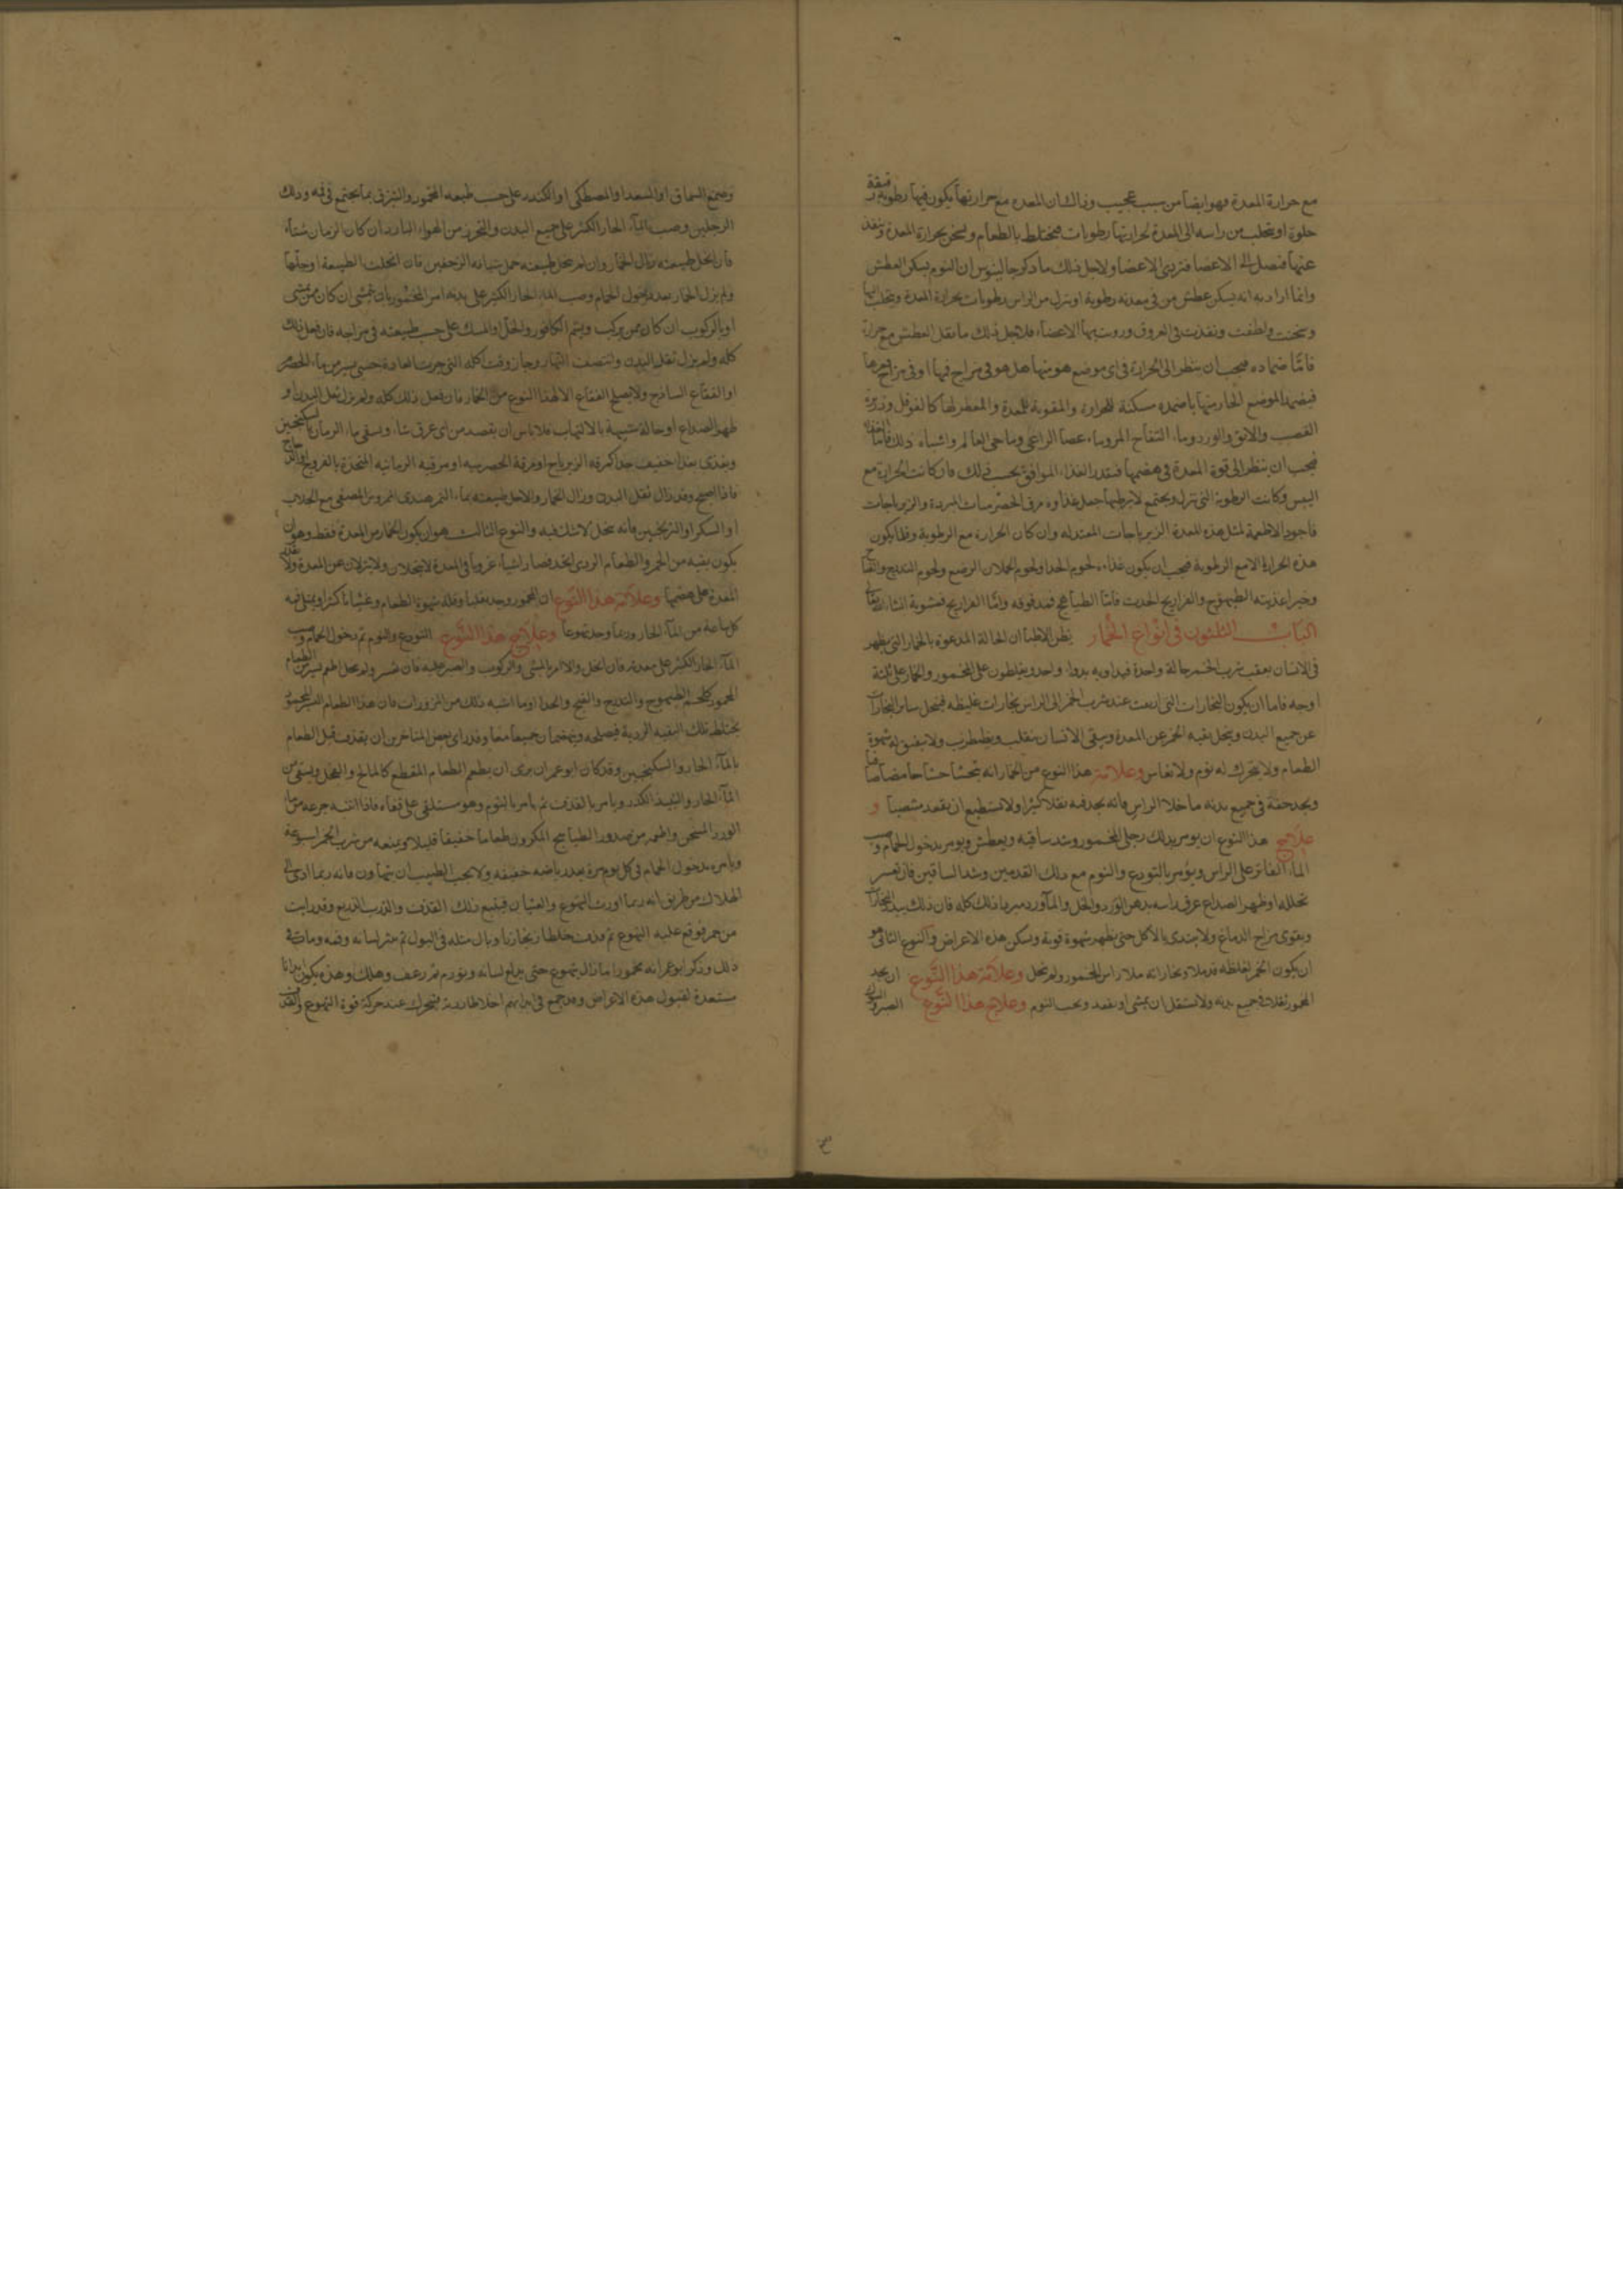 مع حرارة المعدة فهو ايضا من سبب عجيب وذاك ان المعده مع حرارتها يكون فيها رطوبة رقيقة
حلوة او يتحلب من راسه الى المعدة لحرارتها رطوبات فيختلط بالطعام ويسخن بحرارة المعدة وينفذ
عنها فتصل الى الاعضا فتربى الاعضا ولاجل ذلك ما ذكر جالينوس ان النوم يسكن العطش
وانما اراد به انه يسكن عطش من فى معدته رطوبة او ينزل من الراس رطوبات بحرارة المعدة ويتحلب اليها
وسخنت ولطفت ونفذت فى العروق ورويت بها الاعضاء فلاجل ذلك ما يقل العطش مع حرارة
فامّا ضماده فيجب ان ينظر الى الحرارة فى اى موضع هو منها هل هو فى مزاج فيها او فى مزاج قعرها
فيضمد الموضع الحار منها باضمده مسكنة للحرارة والمقوية للمعدة والمعطر لها كالفوفل وذريرة
القصب والورد وماء التفاح المز وماء عصا الراعى وماء حى العالم واشباه ذلك فامّا غذاه
فيجب ان ينظر الى قوة المعدة فى هضمها فيقدر الغذاء الموافق بحسب ذلك فان كانت الحرارة مع
اليبس وكانت الرطوبة التى تنزل ويجتمع لا يرطبها جعل غذاوه مرق الحصرميات المبردة والزيرباجات
فاجود الاطعمة لمثل هذه المعدة الزيرباجات المعتدله وان كان الحرارة مع الرطوبة وقلما يكون
هذه الحرارة الا مع الرطوبة فيجب ان يكون غذاءه لحوم الجدا ولحوم الحملان الرضع ولحوم التدرج والقباج
وخير اغذيته الطيهوج والفراريج الحديث فامّا الطباهج فهذ فوفه وامّا الفراريج فمشوية انشاء الله تعالى
الباب الثلثون فى انواع الخمار يظن الاطباء ان الحالة المدعوة بالخمار التى يظهر
فى الانسان بعقب شرب الخمر حالة واحدة فيداويه بدواء واحد ويغلطون على المخمور والخمار على ثلثة
اوجه فاما ان يكون البخارات التى اربعت عند شرب الخمر الى الراس بخارات غليظه فينحل سائر البخارات
عن جميع البدن وينحل بقيه الخمر عن المعدة ويبقى الانسان يتقلب ويضطرب ولا ينفتق له شهوة
الطعام ولا يتحرك له نوم ولا نعاس وعلامة هذا النوع من الخمار انه يتجشأ جشأ حامضا
ويجد خفة فى جميع بدنه ما خلا الراس فانه يجد فيه ثقلا كثيرا ولا يستطيع ان يقعد منتصبا و
علاج هذا النوع ان يومر بدلك رجلى المخمور وشد ساقيه ويعطش ويومر بدخول الحمام وصب
الماء الفاتر على الراس ويؤمر بالتودع والنوم مع دلك القدمين وشد الساقين فان تعسر
تحلله او ظهر الصداع عرق راسه بدهن الورد والخل والماورد مبردا ذلك كله فان ذلك يبدد البخارات
ويقوى مزاج الدماغ ولا يبتدى بالاكل حتى يظهر شهوة قوية ويسكن هذه الاعراض والنوع الثانى هو
ان يكون الخمر لغلظه قد ملا وبخاراته ملا راس المخمور ولم تحل وعلامة هذا النّوع ان يجد
المخمور ثقلا فى جميع بدنه ولا يستقل ان يمشى او يقعد ويحب النوم وعلاج هذا النّوع
وصمغ السماق او السعد او المصطكى او الكندر على حسب طبيعه المخمور والتبزق بما يجتمع فى فمه ودلك
الرجلين وصب الماء الحار الكثير على جميع البدن والتحرز من الهواء البارد ان كان الزمان شتاء
فان انحل طبيعته زال الخمار وان لم ينحل طبيعته حمل شيافه الزحفين فان انحلت الطبيعة او حلها
ولم يزل الخمار بعد دخول الحمام وصب الماء الحار الكثير على بدنه امر المخمور بان يمشى ان كان ممن يمشى
او بالركوب ان كان ممن يركب ويشم الكافور والخل او المسك على حسب طبيعته فى مزاجه فان فعل ذلك
كله ولم يزل ثقل البدن وانتصف النهار وجاز وقت اكله التى جرت العادة حسى يسير من ماء الحصرم
او الفقاع الساذج ولا يصلح الفقاع الا لهذا النوع من الخمار فان فعل ذلك كله ولم يزل ثقل البدن او
ظهر الصداع او حالة شبيهة بالالتهاب فلا باس ان يفصد من اى عرق شاء ويسقى ماء الرمان بالسكنجبين
ويغذى بغذا خفيف جدا كمرقه الزيرباج او مرقة الحصرميه او مرقيه الرمانيه المتخذة بالفروج او الدراج
فاذا اصبح وقد زال ثقل البدن وزال الخمار والا حل طبيعته بماء التمر هندى الممروس المصفى مع الجلاب
او السكر او الترنجبين فانه ينحل لا شك فيه والنوع الثالث هو ان يكون الخمار من المعدة فقط وهو ان
يكون بقيه من الخمر والطعام الردى اتحد فصارا شياء غرويا فى المعدة لا ينحلان ولا ينزلان عن المعدة ولا قدرة
المعدة على هضمها وعلامة هذا النّوع ان المخمور وجد تقلبا وقلة شهوة الطعام وغشيانا كثيرا ويمتلى فيه
كل ساعة من الماء الحار وربما وجد تهوعا وعلاج هذا النّوع التودع والنوم ثم دخول الحمام وصب
الماء الحار الكثير على معدته فان انحل والا امر بالمشى والركوب والصبر عليه فان عسر ولم ينحل اطعم يسير من الطعام
المحمود كلحم الطيهوج والتدرج والقبج والجدا وما اشبه ذلك من المزورات فان هذا الطعام اليسير
يختلط بتلك البقيه الردية فيصلحه وينهضمان جميعا معا وقد راى بعض المتاخرين ان يقذف قبل الطعام
بالماء الحار والسكنجبين وقد كان ابو عمران يرى ان يطعم الطعام المقطع كالمالح والفجل ويسقى من
الماء الحار والنبيذ الكدر ويامر بالقذف ثم يامر بالنوم وهو مستلقى على قفاه فاذا انتبه جرعه من ماء
الورد المسخن واطعمه من صدور الطباهيج المكرون طعاما خفيفا قليلا ويمنعه من شرب الخمر اسبوعه
ويامره بدخول الحمام فى كل يوم مرة بعد رياضه خفيفه ولا يجب الطبيب ان يتهاون فانه ربما ادى الى
الهلاك من طريق انه ربما اورث التهوع والغثيان فيتبع ذلك القذف والذرب الذريع وقد رايت
من خمر فوقع عليه التهوع ثم قذف خلطا زنجاريا وبال مثله فى البول ثم بثر لسانه وفمه ومات فى
ذلك وذكر ابو عمرانه مخمورا ما زال يتهوع حتى بدلع لسانه ويورم ثم رعف وهلك وهذه يكون ابدانا
مستعدة لقبول هذه الاعراض وقد جمع فى ابدانهم اخلاطا ردية فيتحرك عند حركة قوة التهوع والقذف